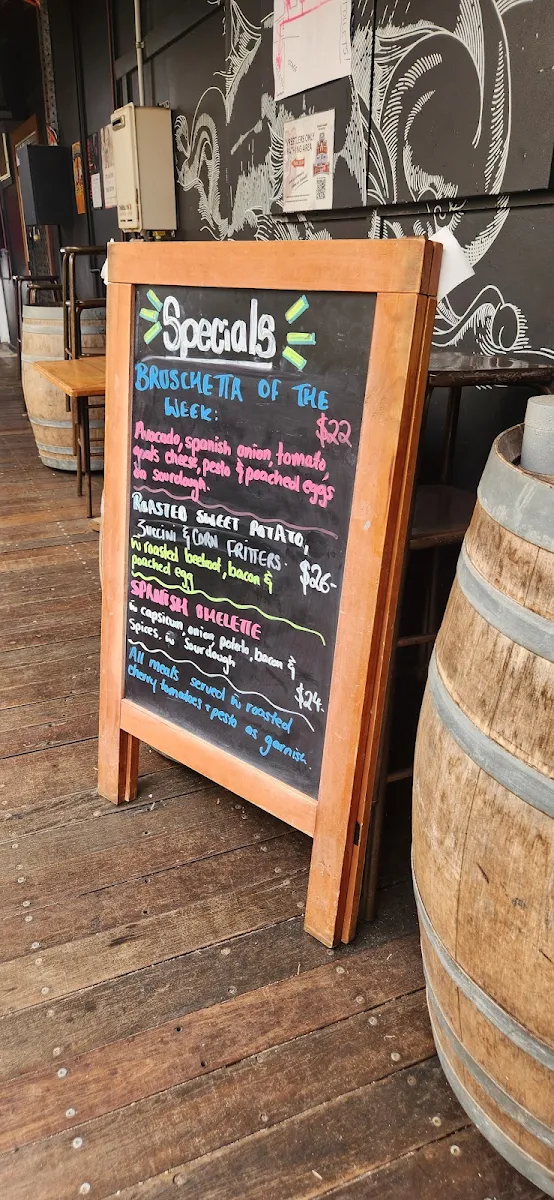 Specials
BRUSCHETTA OF THE
WEEK:
$22
Avocado, spanish onion, tomato,
goats cheese, pesto & poached eggs
on sourdough.
ROASTED SWEET POTATO,
ZUCCINI & CORN FRITTERS.
$26-
w roasted beetroot, bacon &
poached egg
SPANISH OMELETTE
w capsicum, onion, potato, bacon &
spices. w sourdough
$24-
All meals served w roasted
cherry tomatoes + pesto as garnish.